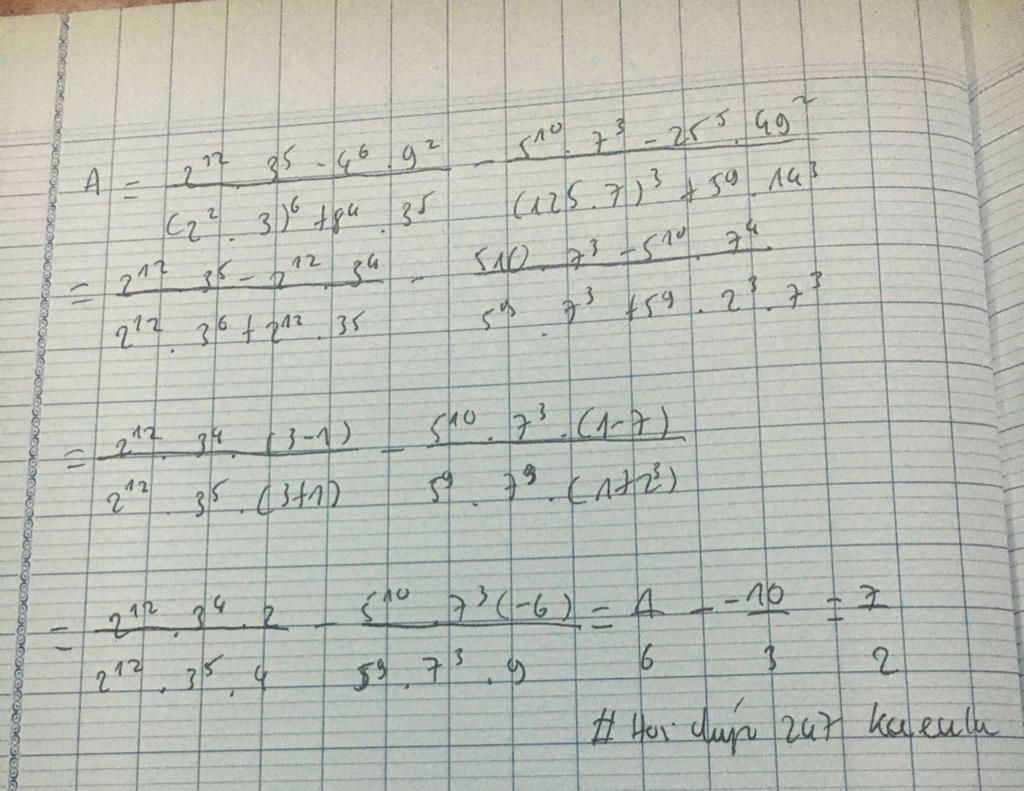 A = \frac{2^{12} . 3^5 - 4^6 . 9^2}{(2^2 . 3)^6 + 8^4 . 3^5} - \frac{5^{10} . 7^3 - 25^5 . 49^2}{(125 . 7)^3 + 5^9 . 14^3}
= \frac{2^{12} . 3^5 - 2^{12} . 3^4}{2^{12} . 3^6 + 2^{12} . 3^5} - \frac{5^{10} . 7^3 - 5^{10} . 7^4}{5^9 . 7^3 + 5^9 . 2^3 . 7^3}
= \frac{2^{12} . 3^4 . (3-1)}{2^{12} . 3^5 . (3+1)} - \frac{5^{10} . 7^3 . (1-7)}{5^9 . 7^9 . (1+2^3)}
= \frac{2^{12} . 3^4 . 2}{2^{12} . 3^5 . 4} - \frac{5^{10} . 7^3 (-6)}{5^9 . 7^3 . 9} = \frac{1}{6} - \frac{-10}{3} = \frac{7}{2}
# Hoi đáp 247